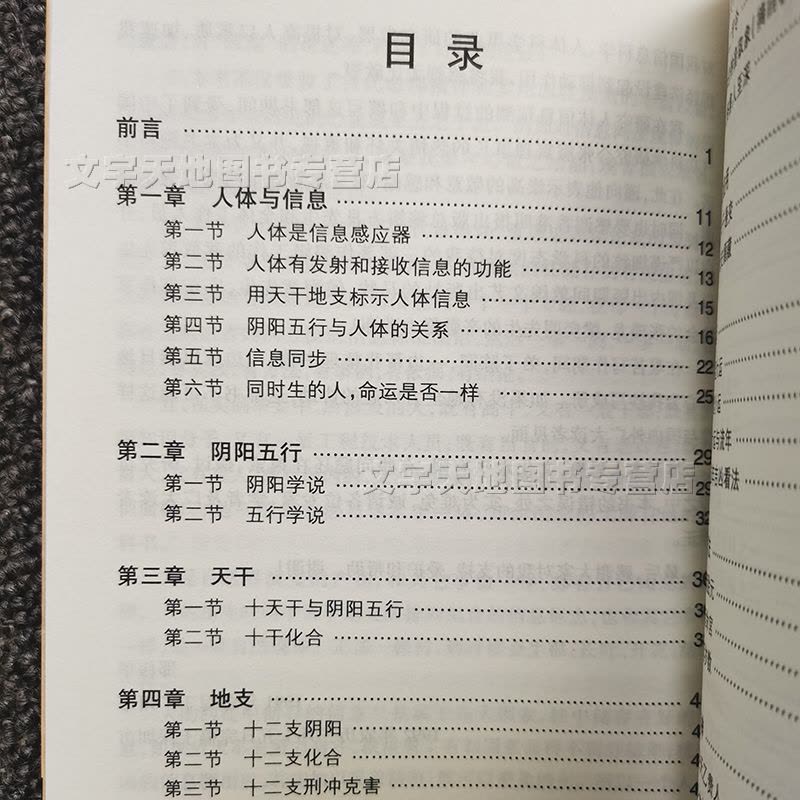 目录
前言 1
文字天地图书专营店
第一章 人体与信息 11
第一节 人体是信息感应器 12
第二节 人体有发射和接收信息的功能 13
第三节 用天干地支标示人体信息 15
第四节 阴阳五行与人体的关系 16
第五节 信息同步 22
第六节 同时生的人,命运是否一样 25
第二章 阴阳五行 29
第一节 阴阳学说 29
文字天地图书专营店
第二节 五行学说 32
第三章 天干
第一节 十天干与阴阳五行
第二节 十干化合
第四章 地支
第一节 十二支阴阳
第二节 十二支化合
第三节 十二支刑冲克害